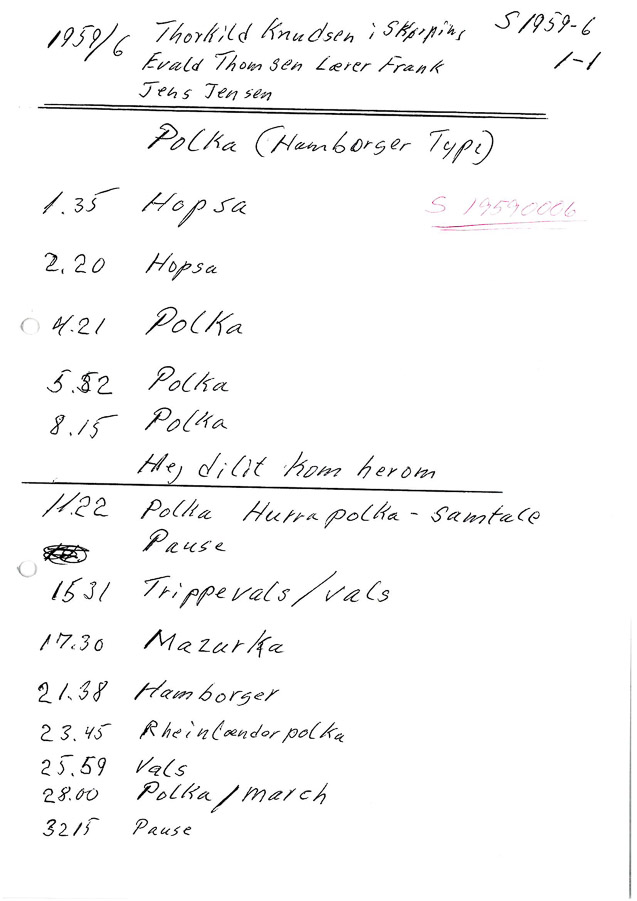 1959/6 Thorkild Knudsen i Skørping S 1959-6
Evald Thomsen Lærer Frank 1-1
Jens Jensen
Polka (Hamborger Type)
1.35 Hopsa
S 19590006
2.20 Hopsa
4.21 Polka
5.52 Polka
8.15 Polka
Hej dilit kom herom
11.22 Polka Hurrapolka - samtale
Pause
1531 Trippevals/vals
17.30 Mazurka
21.38 Hamborger
23.45 Rheinlænderpolka
25.59 Vals
28.00 Polka/march
3215 Pause